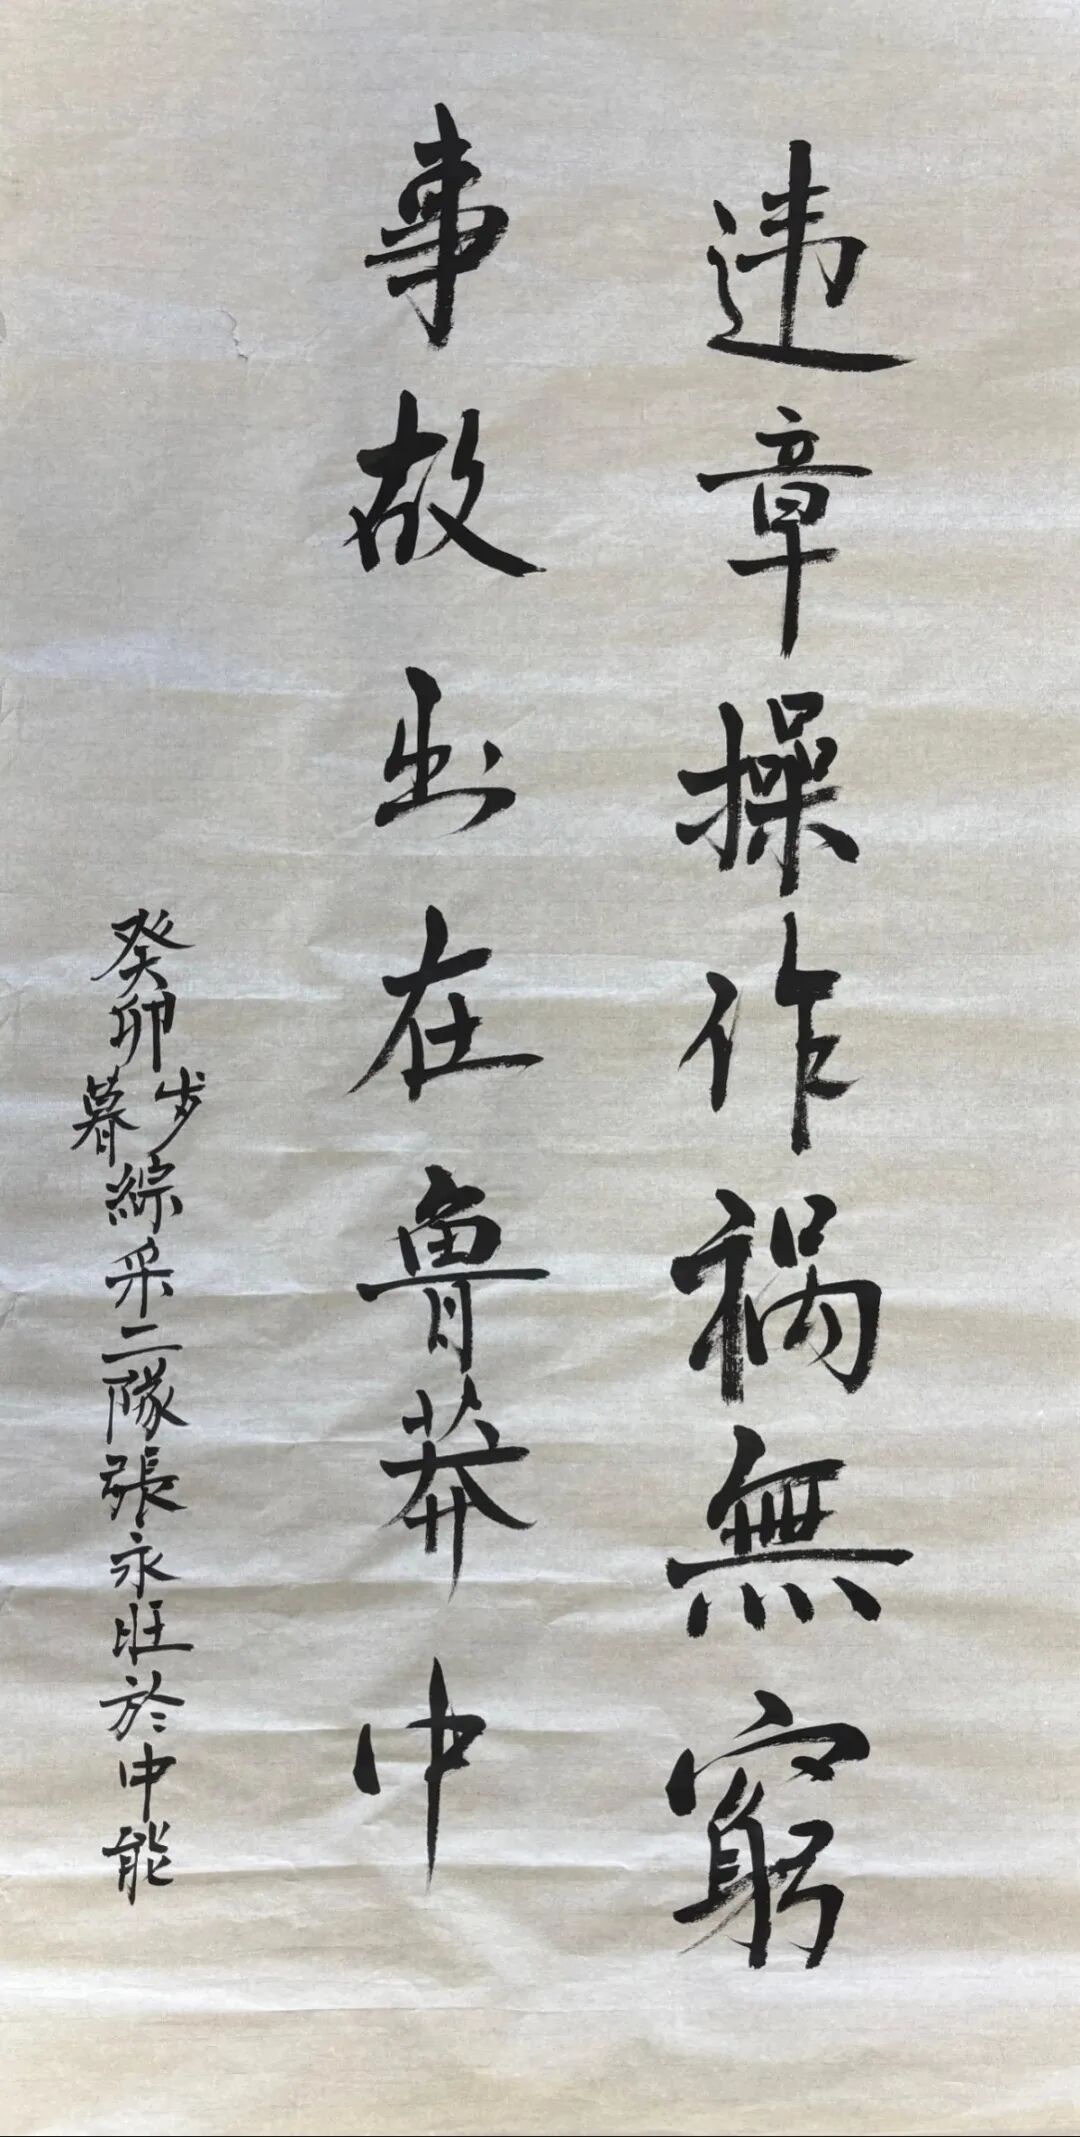 违章操作祸無窮
事故出在鲁莽中
癸卯岁暮綜采二隊張永旺於中能